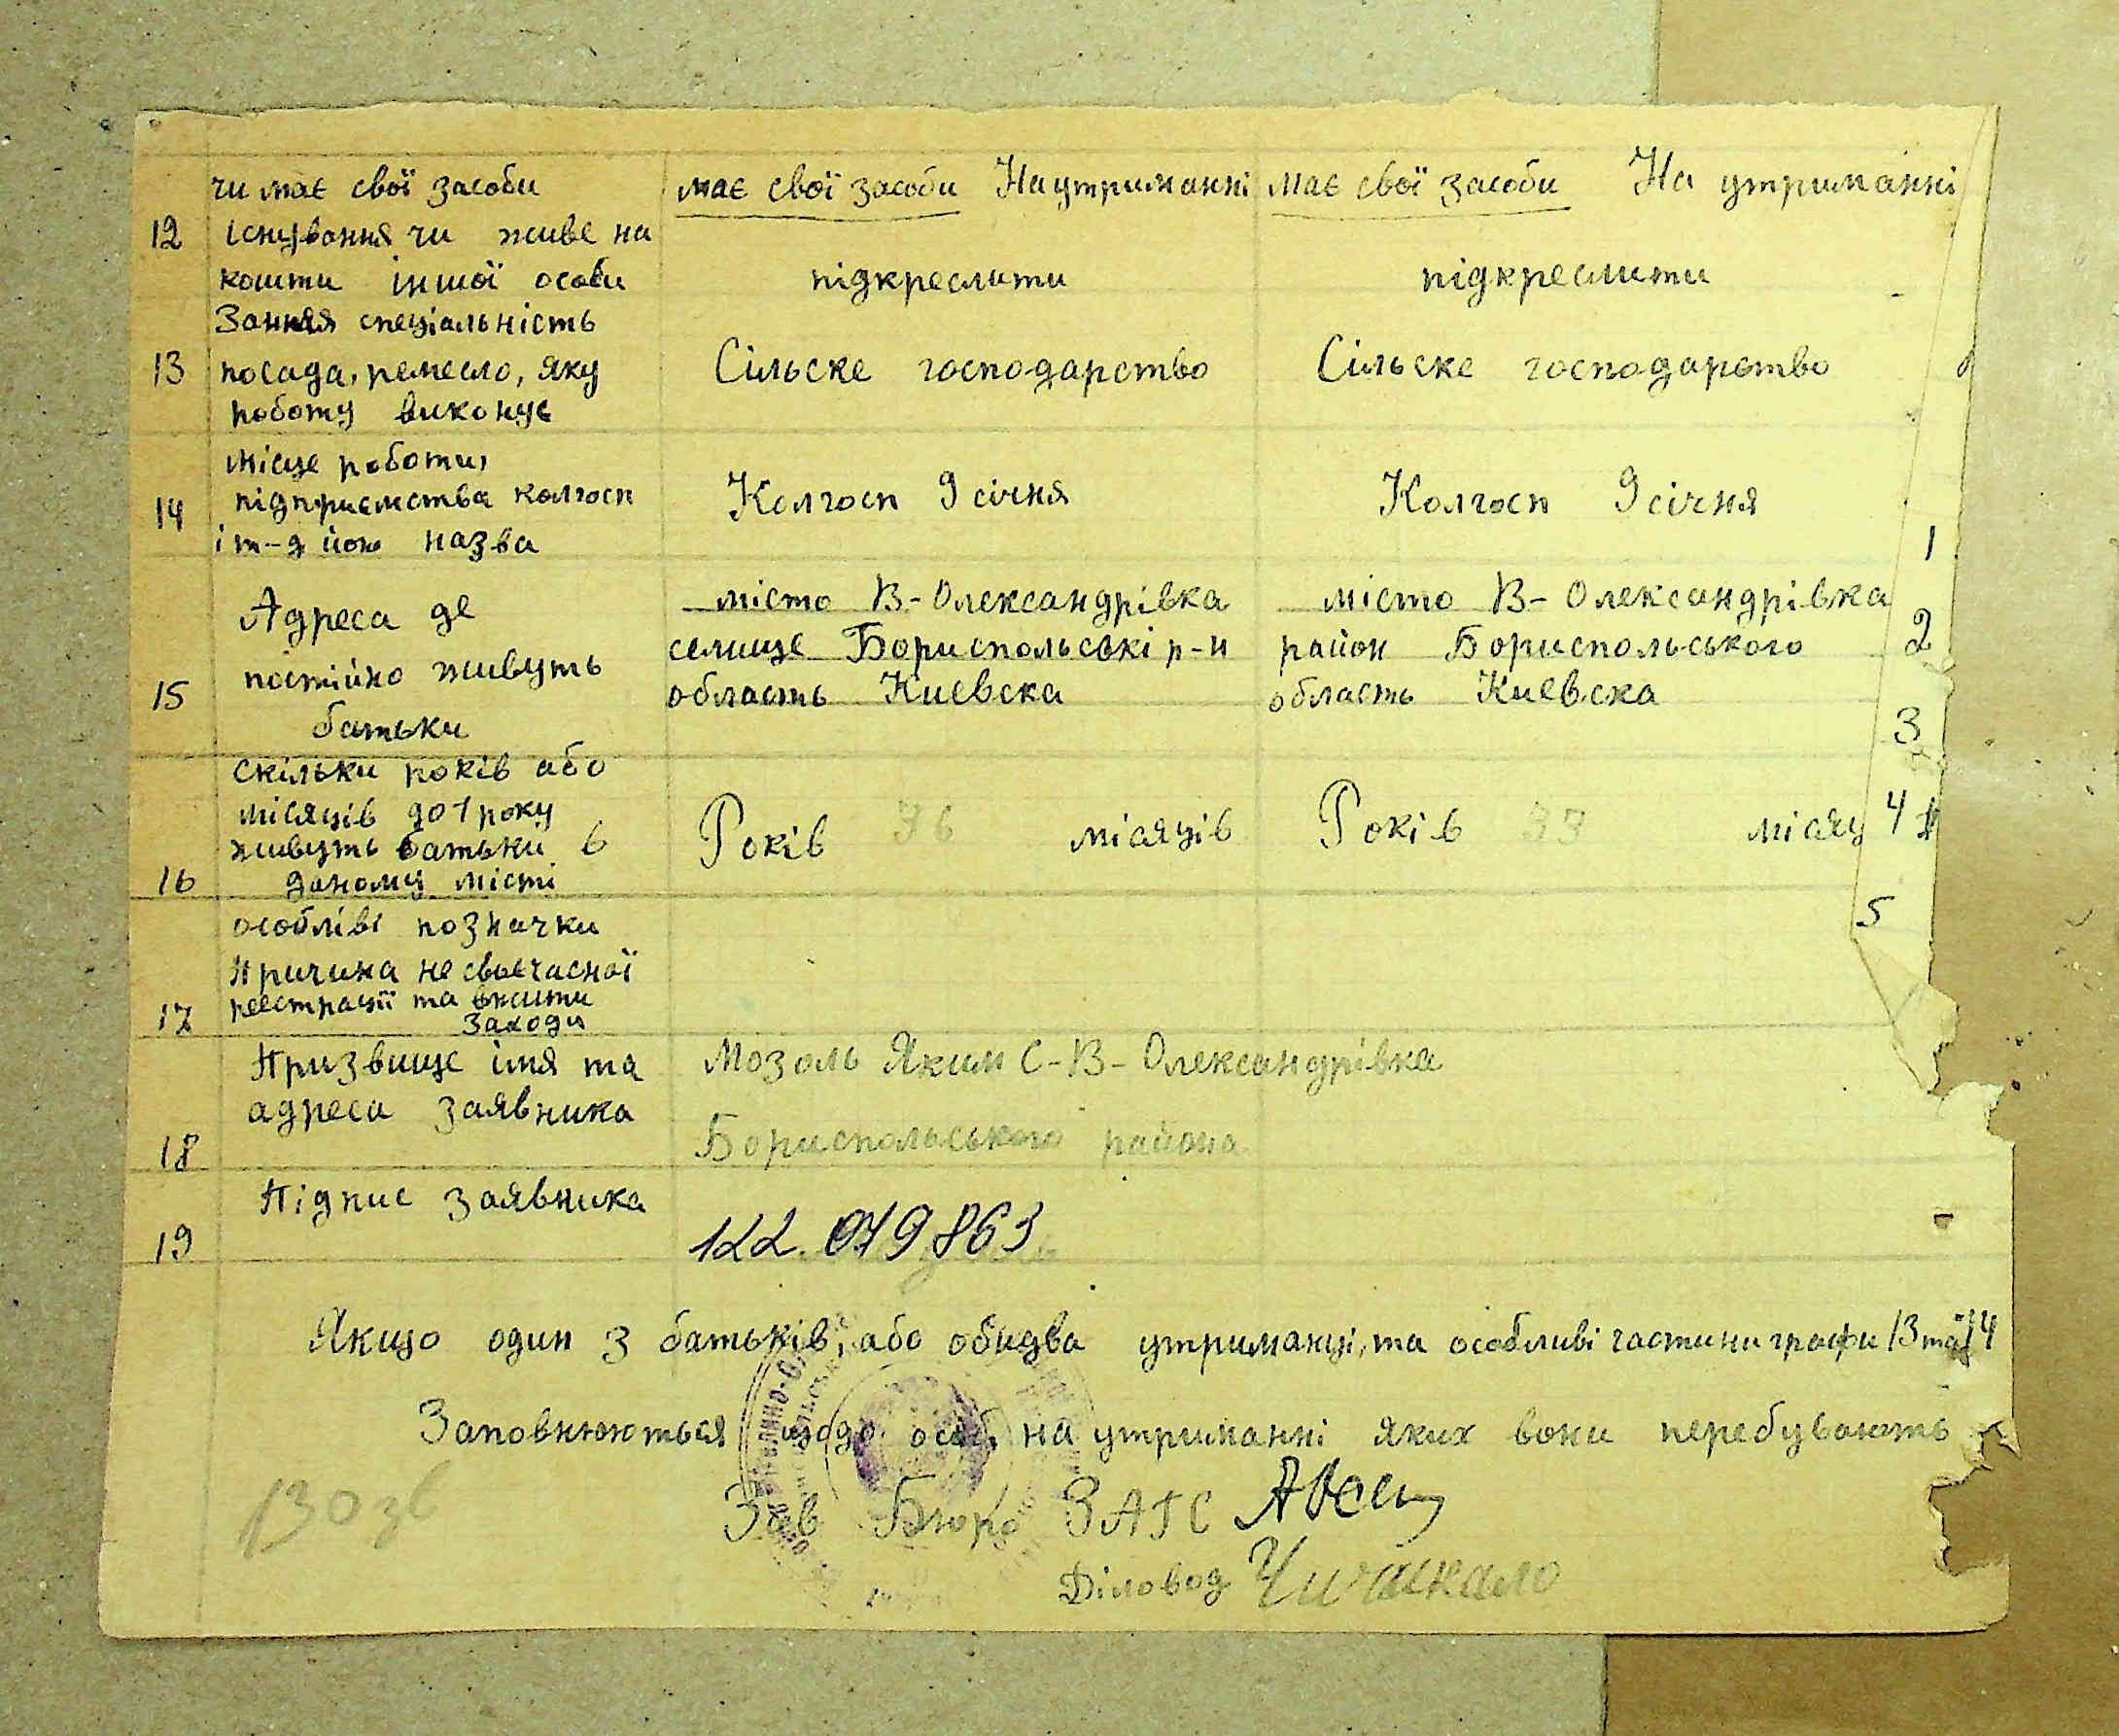 чи має свої засоби має свої засоби На утриманні має свої засоби На утриманні
12 існування чи живе на
кошти іншої особи підкреслити підкреслити
Заняя спеціальність
13 посада, ремесло, яку Сільске господарство Сільске господарство
роботу виконує
місце роботи,
14 підприємства колгосп Колгосп 9 січня Колгосп 9 січня
і т-д його назва
1
Адреса де місто В-Олександрівка місто В-Олександрівка
селище Бориспольські р-н район Бориспольського 2
15 постійно живуть область Киевска область Киевска
батьки 3
скільки років або
місяців до 1 року
живуть батьки в Років 36 місяців Років 33 місяц 4
16 даному місті
5
особліві позначки
Причина не своєчасної
17 реєстрації та вжити
заходи
Призвище імя та Мозоль Яким С-В-Олександрівка
адреса заявника
18 Бориспольського района
Підпис заявника
19 122.079863
Якщо один з батьків, або обидва утриманці, та особливі частини графи 13 та 14
Заповнюються щодо осіб, на утриманні яких вони перебувають
Зав Бюро ЗАГС
Діловод